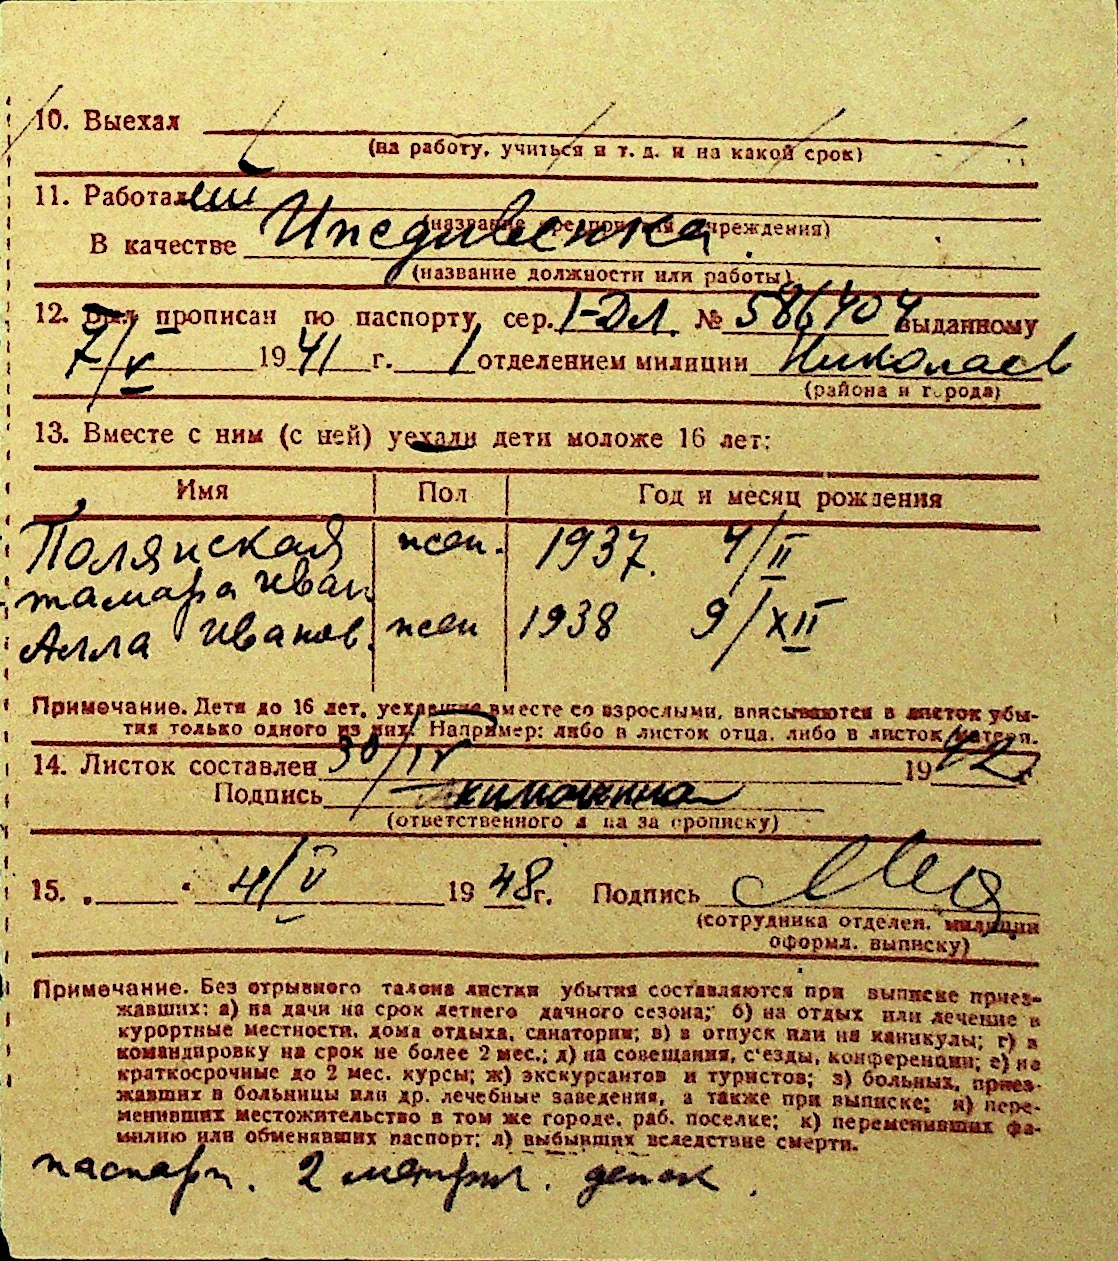 10. Выехал
(на работу, учиться и т. д. и на какой срок)
11. Работал
(название предприятия учреждения)
В качестве Иждивенка
(название должности или работы)
12. Был прописан по паспорту сер. I-ДЛ № 586404 выданному
7/V 1941 г. 1 отделением милиции Николаев
(района и города)
13. Вместе с ним (с ней) уехали дети моложе 16 лет:
Имя Пол Год и месяц рождения
Полянская жен. 1937. 4/II
тамара Иван
Алла Иванов. жен 1938 9/XII
Примечание. Дети до 16 лет, уехавшие вместе со взрослыми, вписываются в листок убы-
тия только одного из них. Например: либо в листок отца, либо в листок матери.
14. Листок составлен 30/IV 19
Подпись
(ответственного лица за прописку)
15. „ " 4/V 1948 г. Подпись
(сотрудника отделен. милиции
оформл. выписку)
Примечание. Без отрывного талона листки убытия составляются при выписке приез-
жавших: а) на дачи на срок летнего дачного сезона; б) на отдых или лечение в
курортные местности, дома отдыха, санатории; в) в отпуск или на каникулы; г) в
командировку на срок не более 2 мес.; д) на совещания, с'езды, конференции; е) на
краткосрочные до 2 мес. курсы; ж) экскурсантов и туристов; з) больных, приез-
жавших в больницы или др. лечебные заведения, а также при выписке; и) пере-
менивших местожительство в том же городе, раб. поселке; к) переменивших фа-
милию или обменявших паспорт; л) выбывших вследствие смерти.
паспорт. 2 метрик. деток.